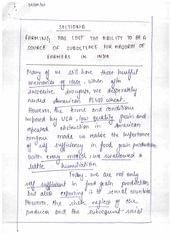 SECTION B
FARMING HAS LOST THE ABILITY TO BE A
SOURCE OF SUBSISTENCE FOR MAJORITY OF
FARMERS IN INDIA
Many of us still have those hurtful
memories of 1960s, when after
successive droughts, we desperately
needed American PL480 wheat.
However, the terms and conditions
imposed by USA, low quality grain and
repeated obstruction in American
congress made us realise the importance
of self sufficiency in food grain production.
With every morsel, we swallowed a
little humiliation.
Today, we are not only
self sufficient in food grain production,
but also exporting it to several countries.
However, the whole neglect of the
producer and the subsequent